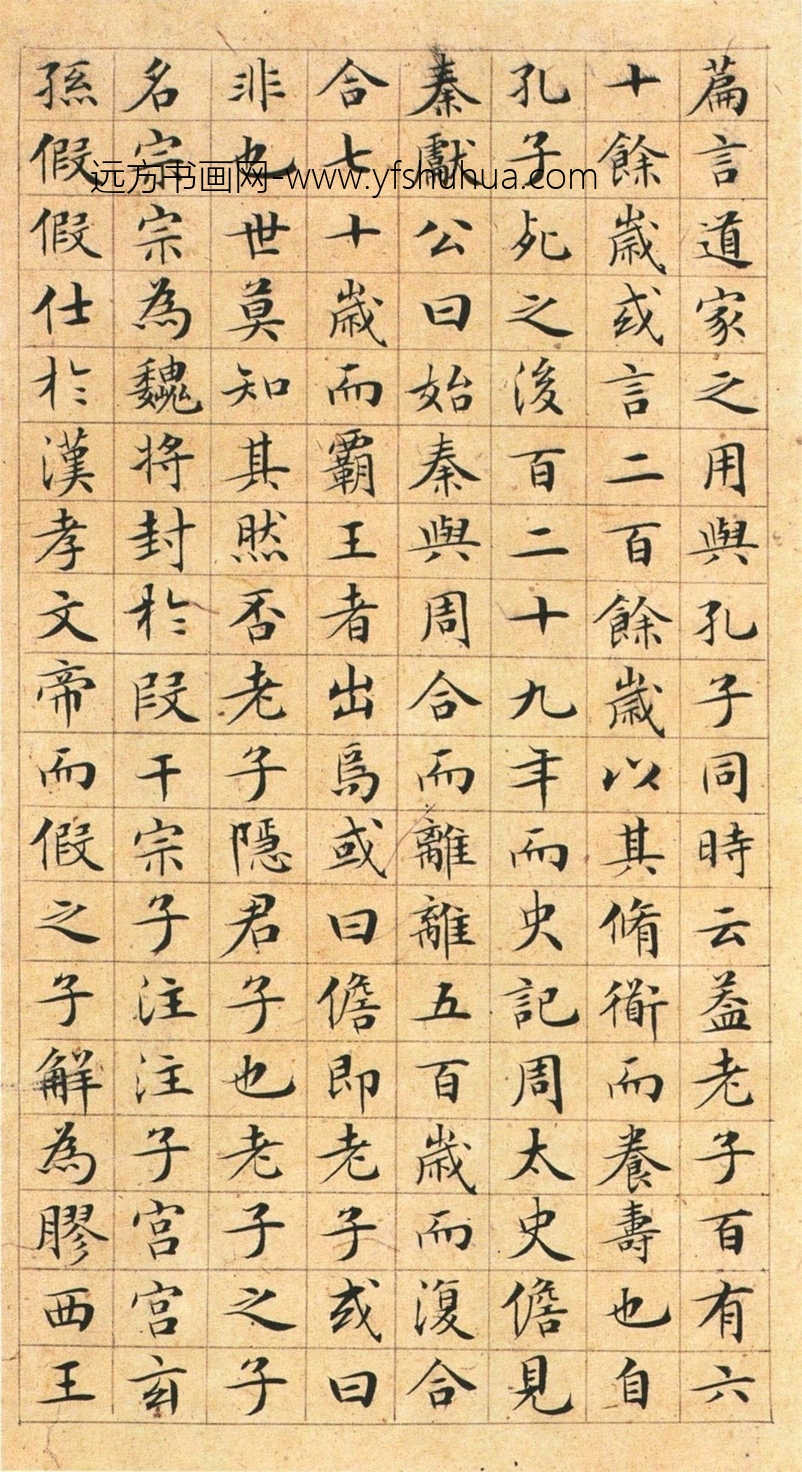 篇言道家之用與孔子同時云葢老子百有六
十餘歲或言二百餘歲以其脩衜而養壽也自
孔子死之後百二十九年而史記周太史儋見
秦獻公曰始秦與周合而離離五百歲而復合
合七十歲而霸王者出焉或曰儋即老子或曰
非也世莫知其然否老子隱君子也老子之子
名宗宗為魏將封於段干宗子注注子宮宮玄
孫假假仕於漢孝文帝而假之子解為膠西王
远方书画网-www.yfshuhua.com